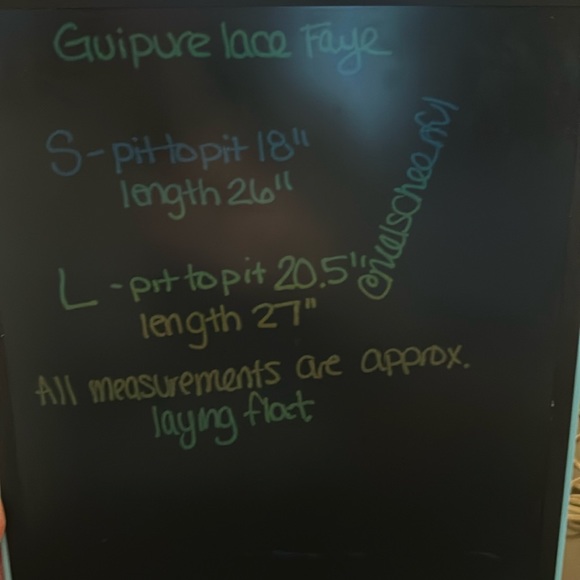 Guipure lace Faye
S - pit to pit 18"
length 26"
L - pit to pit 20.5"
length 27"
All measurements are approx.
laying flat